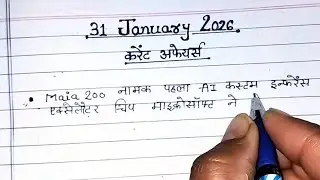 31 January 2026
करेंट अफेयर्स
• Maia 200 नामक पहला AI कस्टम इन्फरेंस
एक्सेलेटर चिप माइक्रोसॉफ्ट ने